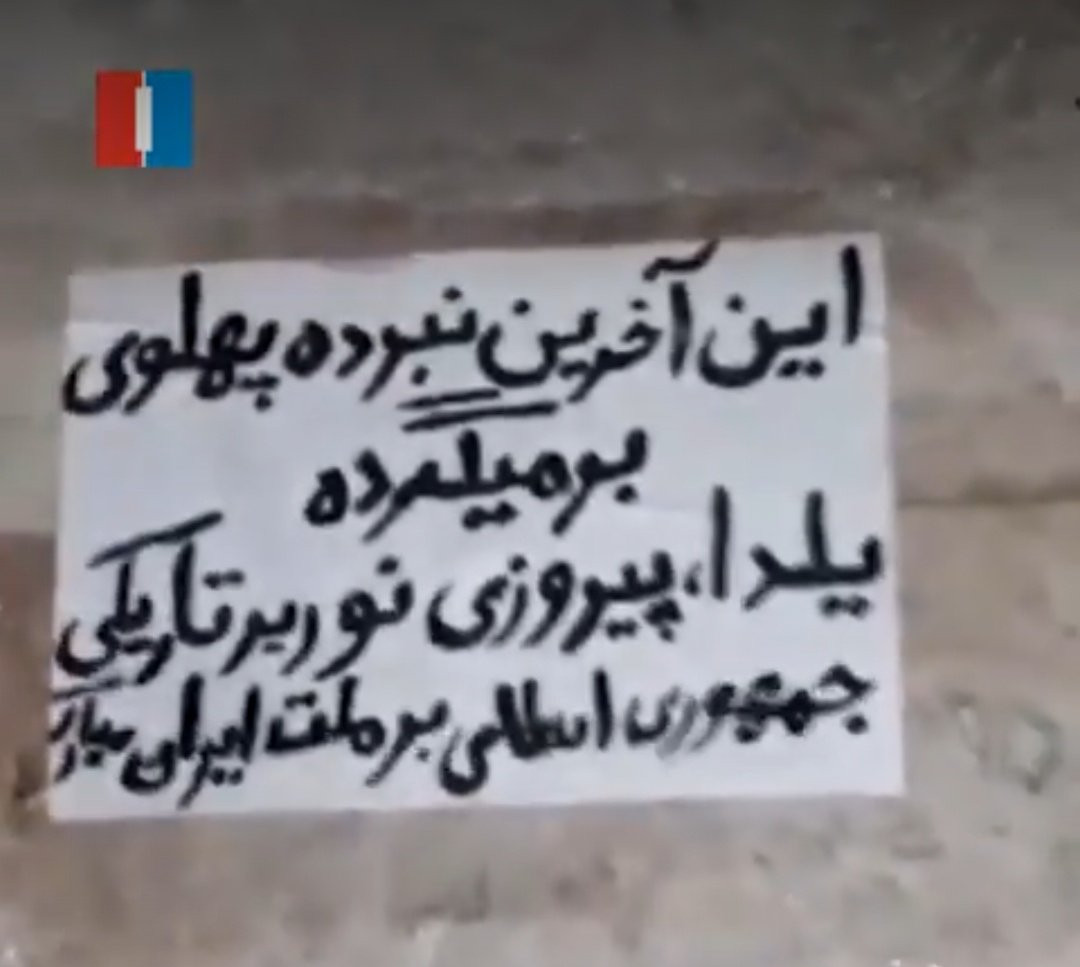 این آخرین نبرده پهلوی
برمیگرده
یلدا، پیروزی نور بر تاریکی
جمهوری اسلامی بر ملت ایران مبارک